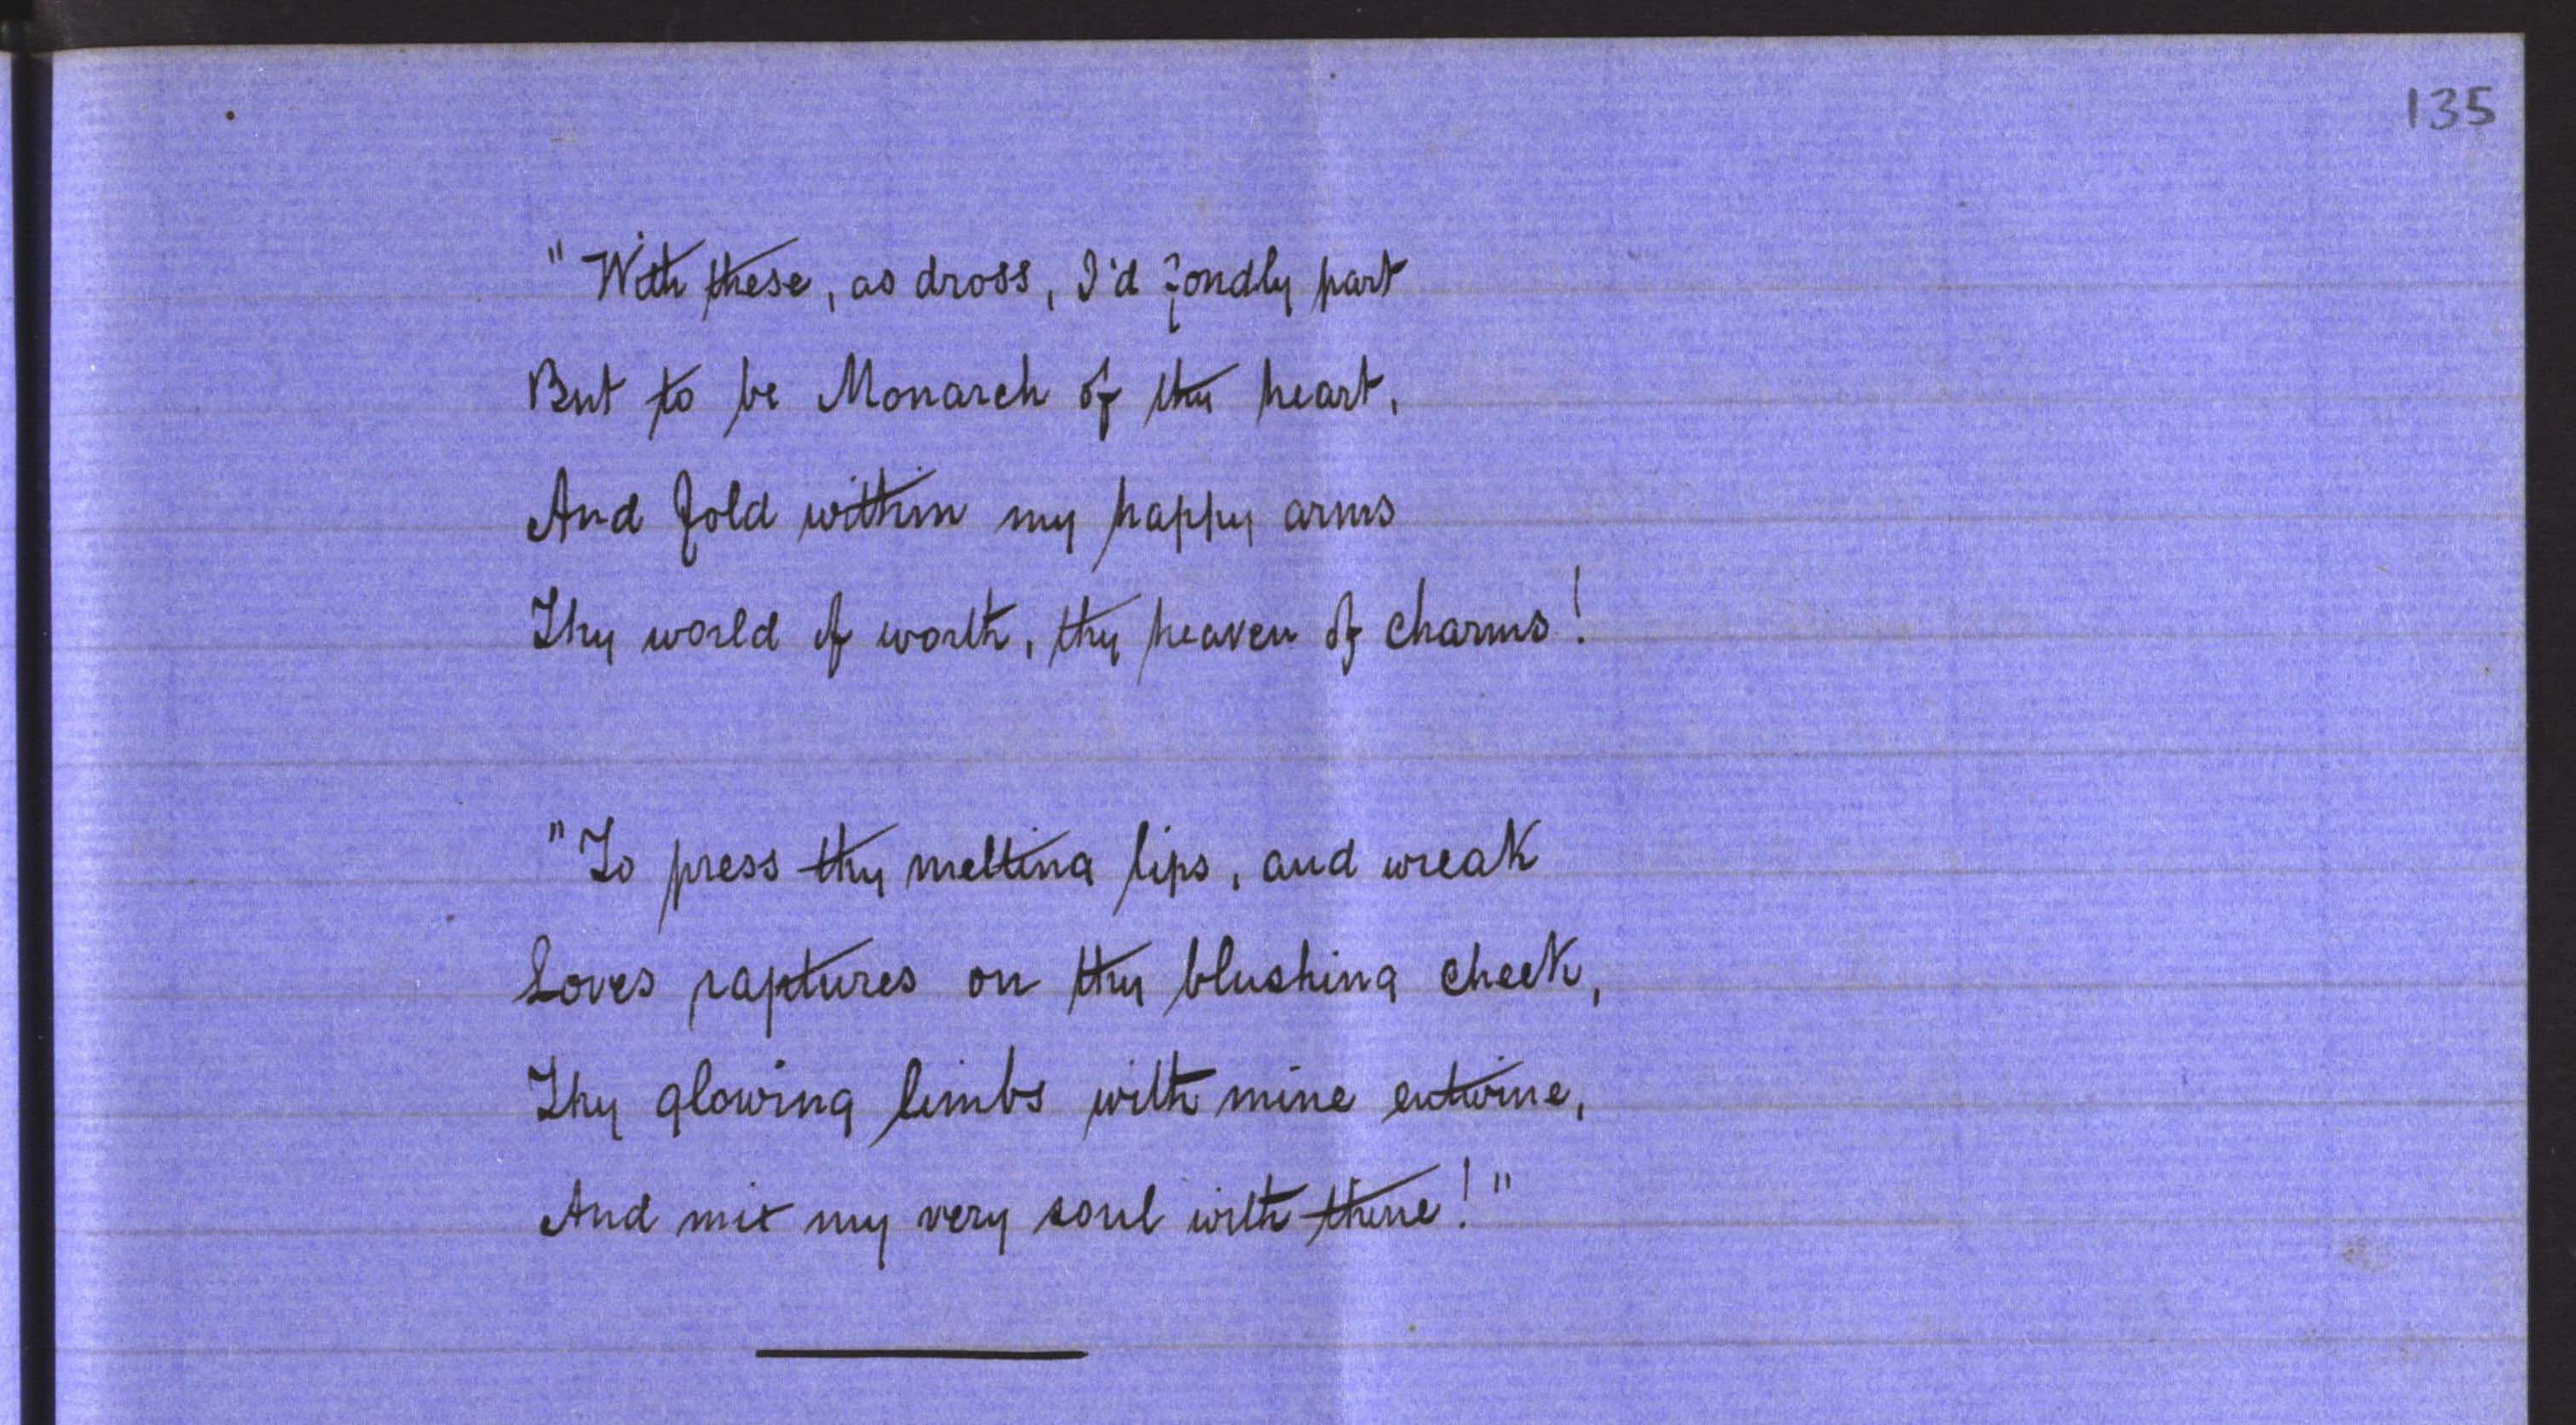 135
"With these, as dross, I'd fondly part
But to be Monarch of thy heart,
And fold within my happy arms
Thy world of worth, thy heaven of charms!
"To press thy melting lips, and wreak
Loves raptures on thy blushing cheek,
Thy glowing limbs with mine entwine,
And mix my very soul with thine!"